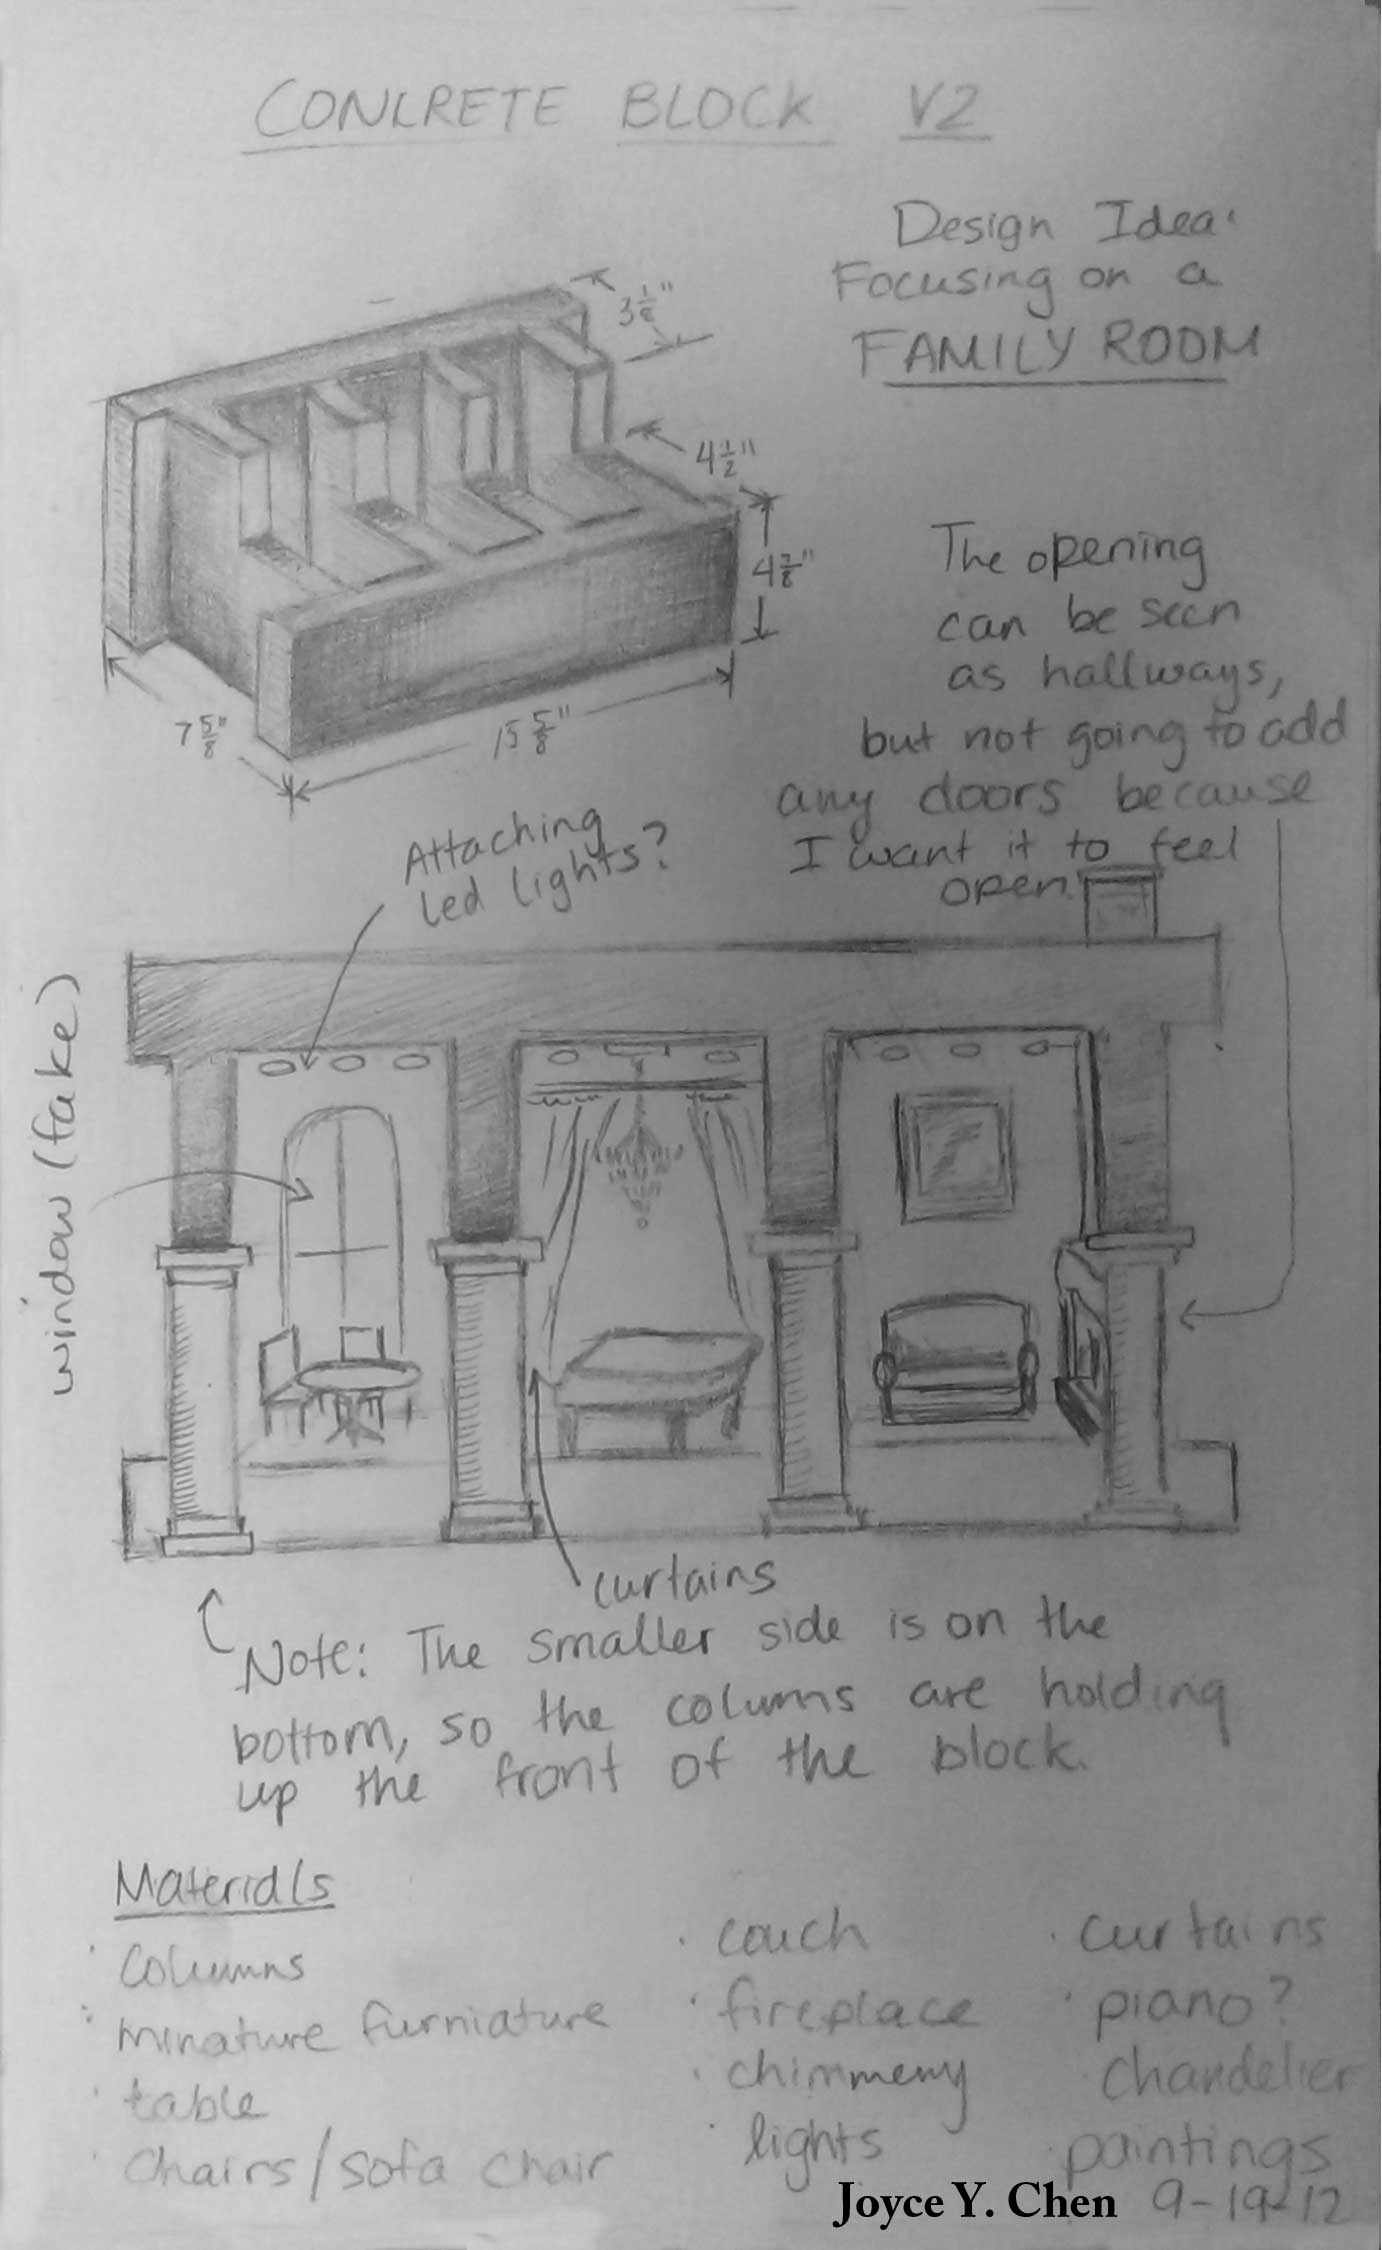 CONCRETE BLOCK V2
Design Idea:
Focusing on a
FAMILY ROOM
3 1/8"
4 1/2"
4 7/8"
7 5/8"
15 5/8"
The opening
can be seen
as hallways,
but not going to add
any doors because
I want it to feel
open.
Attaching
led lights?
window (fake)
curtains
Note: The smaller side is on the
bottom, so the colums are holding
up the front of the block.
Materials
· Columns
· minature furniature
· table
· Chairs/sofa chair
· couch
· fireplace
· chimmeny
· lights
· curtains
· piano?
· chandelier
· paintings
Joyce Y. Chen 9-19-12